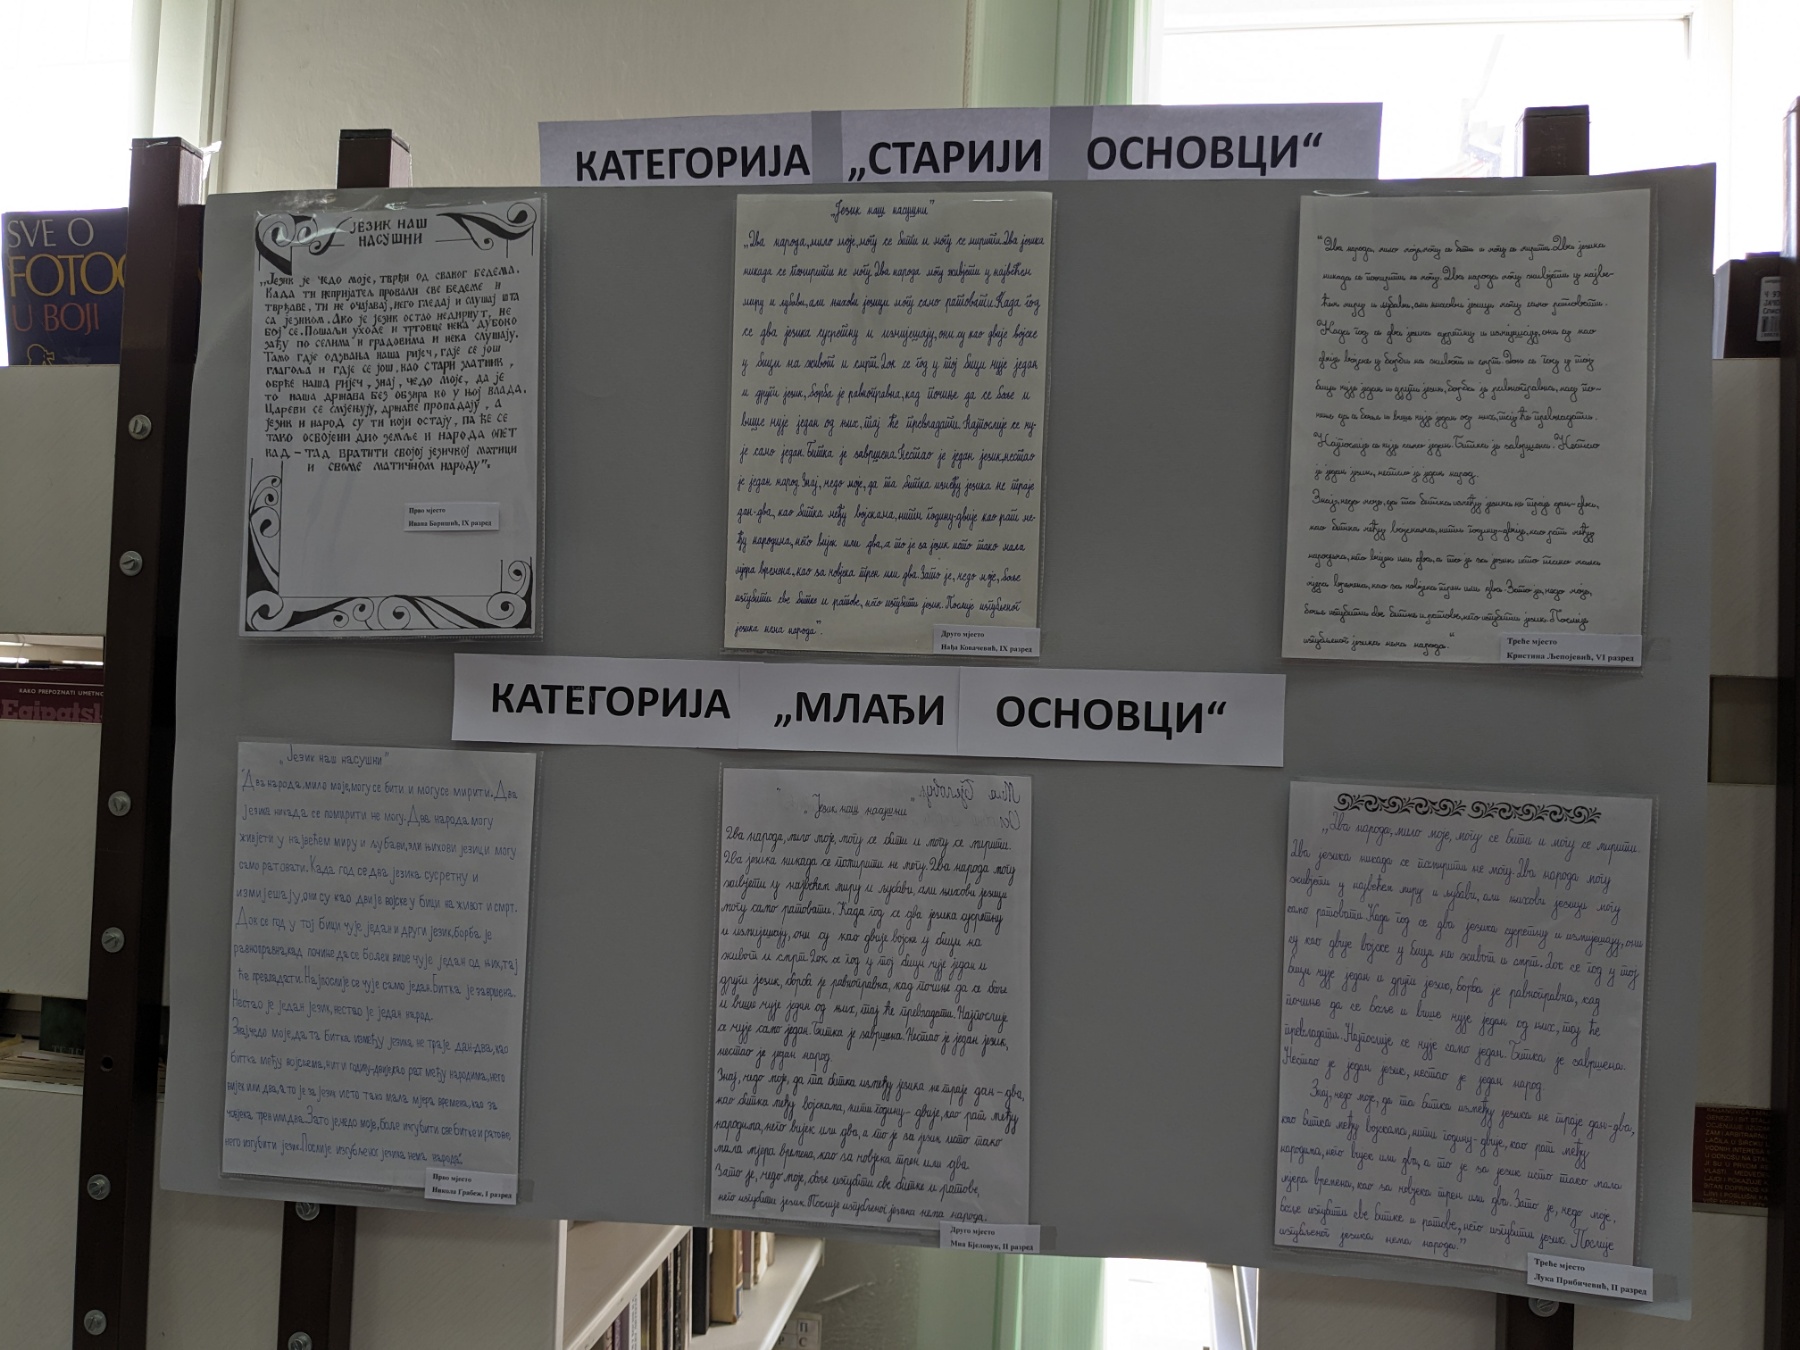 КАТЕГОРИЈА „СТАРИЈИ ОСНОВЦИ“
SVE O
FOTO
U BOJI
ЈЕЗИК НАШ
НАСУШНИ
„Језик је чедо моје, тврђи од сваког бедема.
Када ти непријатељ провали све бедеме и
тврђаве, ти не очајавај, него гледај и слушај шта
са језиком. Ако је језик остао недирнут, не
бој се. Пошаљи уходе и трговце нека дубоко
зађу по селима и градовима и нека слушају.
Тамо гдје одзвања наша ријеч, гдје се још
глагоља и гдје се још, као стари златник,
обрће наша ријеч, знај, чедо моје, да је
то наша држава без обзира ко у њој влада.
Цареви се смјењују, државе пропадају, а
језик и народ су ти који остају, па ће се
тако освојени дио земље и народа опет
кад-тад вратити својој језичкој матици
и своме матичном народу”.
Прво мјесто
Ивана Баришић, IX разред
„Језик наш насушни”
„Два народа, мило моје, могу се бити и могу се мирити. Два језика
никада се помирити не могу. Два народа могу живјети у највећем
миру и љубави, али њихови језици могу само ратовати. Када год
се два језика сусретну и измијешају, они су као двије војске
у бици на живот и смрт. Док се год у тој бици чује један
и други језик, борба је равноправна, кад почиње да се боље и
више чује један од њих, тај ће превладати. Најпослије се чу-
је само један. Битка је завршена. Нестао је један језик, нестао
је један народ. Знај, чедо моје, да та битка између језика не траје
дан-два, као битка међу војскама, нити годину-двије као рат ме-
ђу народима, него вијек или два, а то је за језик исто тако мала
мјера времена, као за човјека трен или два. Зато је, чедо моје, боље
изгубити све битке и ратове, него изгубити језик. Послије изгубљеног
језика нема народа”.
Друго мјесто
Нађа Ковачевић, IX разред
“Два народа, мило моје, могу се бити и могу се мирити. Два језика
никада се помирити не могу. Два народа могу живјети у најве-
ћем миру и љубави, али њихови језици могу само ратовати.
Када год се два језика сусретну и измијешају, они су као
двије војске у борби на живот и смрт. Док се год у тој
бици чује један и други језик, борба је равноправна, кад по-
чиње да се боље и више чује један од њих, тај ће превладати.
Најпослије се чује само један. Битка је завршена. Нестао
је један језик, нестао је један народ.
Знај, чедо моје, да та битка између језика не траје дан-два,
као битка међу војскама, нити годину-двије, као рат међу
народима, него вијек или два, а то је за језик исто тако мала
мјера времена, као за човјека трен или два. Зато је, чедо моје,
боље изгубити све битке и ратове, него изгубити језик. Послије
изгубљеног језика нема народа.“
Треће мјесто
Кристина Љепојевић, VI разред
КАТЕГОРИЈА „МЛАЂИ ОСНОВЦИ“
KAKO PREPOZNATI UMETNO
Egipatsk
„Језик наш насушни”
“Два народа, мило моје, могу се бити и могу се мирити. Два
језика никада се помирити не могу. Два народа могу
живјети у највећем миру и љубави, али њихови језици могу
само ратовати. Када год се два језика сусретну и
измијешају, они су као двије војске у бици на живот и смрт.
Док се год у тој бици чује један и други језик, борба је
равноправна, кад почиње да се боље и више чује један од њих, тај
ће превладати. Најпослије се чује само један. Битка је завршена.
Нестао је један језик, нестао је један народ.
Знај, чедо моје, да та битка између језика не траје дан-два, као
битка међу војскама, нити годину-двије, као рат међу народима, него
вијек или два, а то је за језик исто тако мала мјера времена, као за
човјека трен или два. Зато је, чедо моје, боље изгубити све битке и ратове,
него изгубити језик. Послије изгубљеног језика нема народа.”
Прво мјесто
Никола Грабеж, I разред
„Језик наш насушни”
Два народа, мило моје, могу се бити и могу се мирити.
Два језика никада се помирити не могу. Два народа могу
живјети у највећем миру и љубави, али њихови језици
могу само ратовати. Када год се два језика сусретну
и измијешају, они су као двије војске у бици на
живот и смрт. Док се год у тој бици чује један и
други језик, борба је равноправна, кад почиње да се боље
и више чује један од њих, тај ће превладати. Најпослије
се чује само један. Битка је завршена. Нестао је један језик,
нестао је један народ.
Знај, чедо моје, да та битка између језика не траје дан-два,
као битка међу војскама, нити годину-двије, као рат међу
народима, него вијек или два, а то је за језик исто тако
мала мјера времена, као за човјека трен или два
Зато је, чедо моје, боље изгубити све битке и ратове,
него изгубити језик. Послије изгубљеног језика нема народа.
Друго мјесто
Миа Бјеловук, II разред
„Два народа, мило моје, могу се бити и могу се мирити.
Два језика никада се помирити не могу. Два народа могу
живјети у највећем миру и љубави, али њихови језици могу
само ратовати. Када год се два језика сусретну и измијешају, они
су као двије војске у бици на живот и смрт. Док се год у тој
бици чује један и други језик, борба је равноправна, кад
почиње да се боље и више чује један од њих, тај ће
превладати. Најпослије се чује само један. Битка је завршена.
Нестао је један језик, нестао је један народ.
Знај, чедо моје, да та битка између језика не траје дан-два,
као битка међу војскама, нити годину-двије, као рат међу
народима, него вијек или два, а то је за језик исто тако мала
мјера времена, као за човјека трен или два. Зато је, чедо моје,
боље изгубити све битке и ратове, него изгубити језик. Послије
изгубљеног језика нема народа.”
Треће мјесто
Лука Прибичевић, II разред